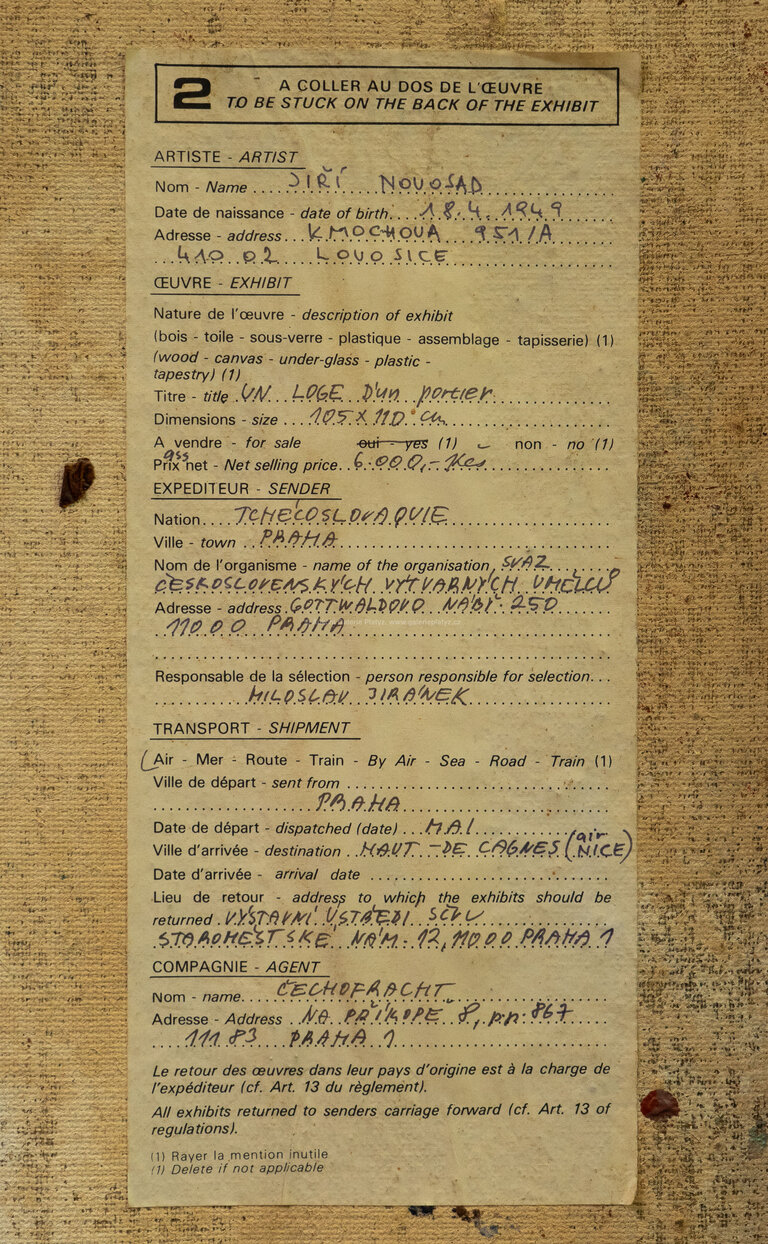 2
A COLLER AU DOS DE L'ŒUVRE
TO BE STUCK ON THE BACK OF THE EXHIBIT
ARTISTE - ARTIST
Nom - Name .... JIŘÍ NOVOSAD
Date de naissance - date of birth.... 18.4.1949
Adresse - address... KMOCHOVA 951/A
410 02 LOVOSICE
ŒUVRE - EXHIBIT
Nature de l'œuvre - description of exhibit
(bois - toile - sous-verre - plastique - assemblage - tapisserie) (1)
(wood - canvas - under-glass - plastic -
tapestry) (1)
Titre - title UN LOGE D'un portier
Dimensions - size ... 105 X 110 cm
A vendre - for sale oui - yes (1) non - no (1)
Prix net - Net selling price.. 6.000,- Kčs
EXPEDITEUR - SENDER
Nation.... TCHÉCOSLOVAQUIE
Ville - town .. PRAHA
Nom de l'organisme - name of the organisation, SVAZ
ČESKOSLOVENSKÝCH VÝTVARNÝCH UMĚLCŮ
Adresse - address GOTTWALDOVO NÁBŘ. 250
11000 PRAHA
Galerie Platýz, www.galerieplatyz.cz
Responsable de la sélection - person responsible for selection...
MILOSLAV JIRÁNEK
TRANSPORT - SHIPMENT
Air - Mer - Route - Train - By Air - Sea - Road - Train (1)
Ville de départ - sent from
PRAHA
Date de départ - dispatched (date) ... MAI
Ville d'arrivée - destination .. HAUT - DE CAGNES (air NICE)
Date d'arrivée - arrival date
Lieu de retour - address to which the exhibits should be
returned . VÝSTAVNÍ ÚSTŘEDÍ SČVU
STAROMĚSTSKÉ NÁM. 12, 11000 PRAHA 1
COMPAGNIE - AGENT
Nom - name.... ČECHOFRACHT
Adresse - Address .. NA PŘÍKOPĚ 8, p.p. 867
111 83 PRAHA 1
Le retour des œuvres dans leur pays d'origine est à la charge de
l'expéditeur (cf. Art. 13 du règlement).
All exhibits returned to senders carriage forward (cf. Art. 13 of
regulations).
(1) Rayer la mention inutile
(1) Delete if not applicable